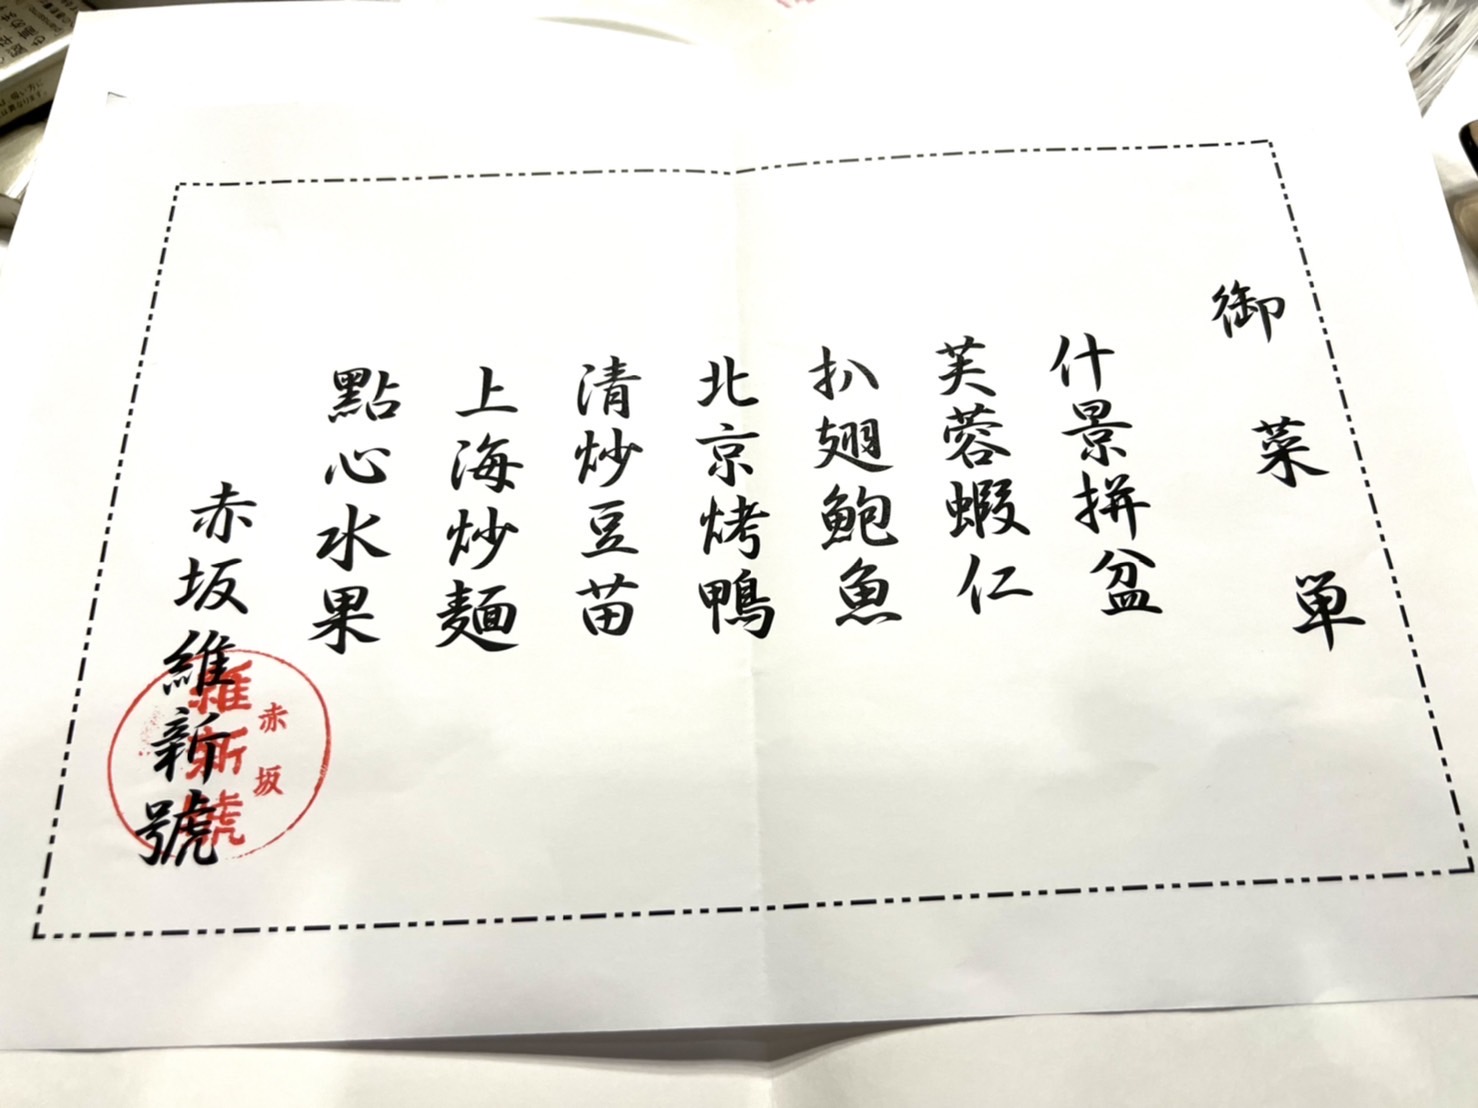 御菜単
什景拼盆
芙蓉蝦仁
扒翅鮑魚
北京烤鴨
清炒豆苗
上海炒麺
點心水果
赤坂維新號
赤坂
維新號